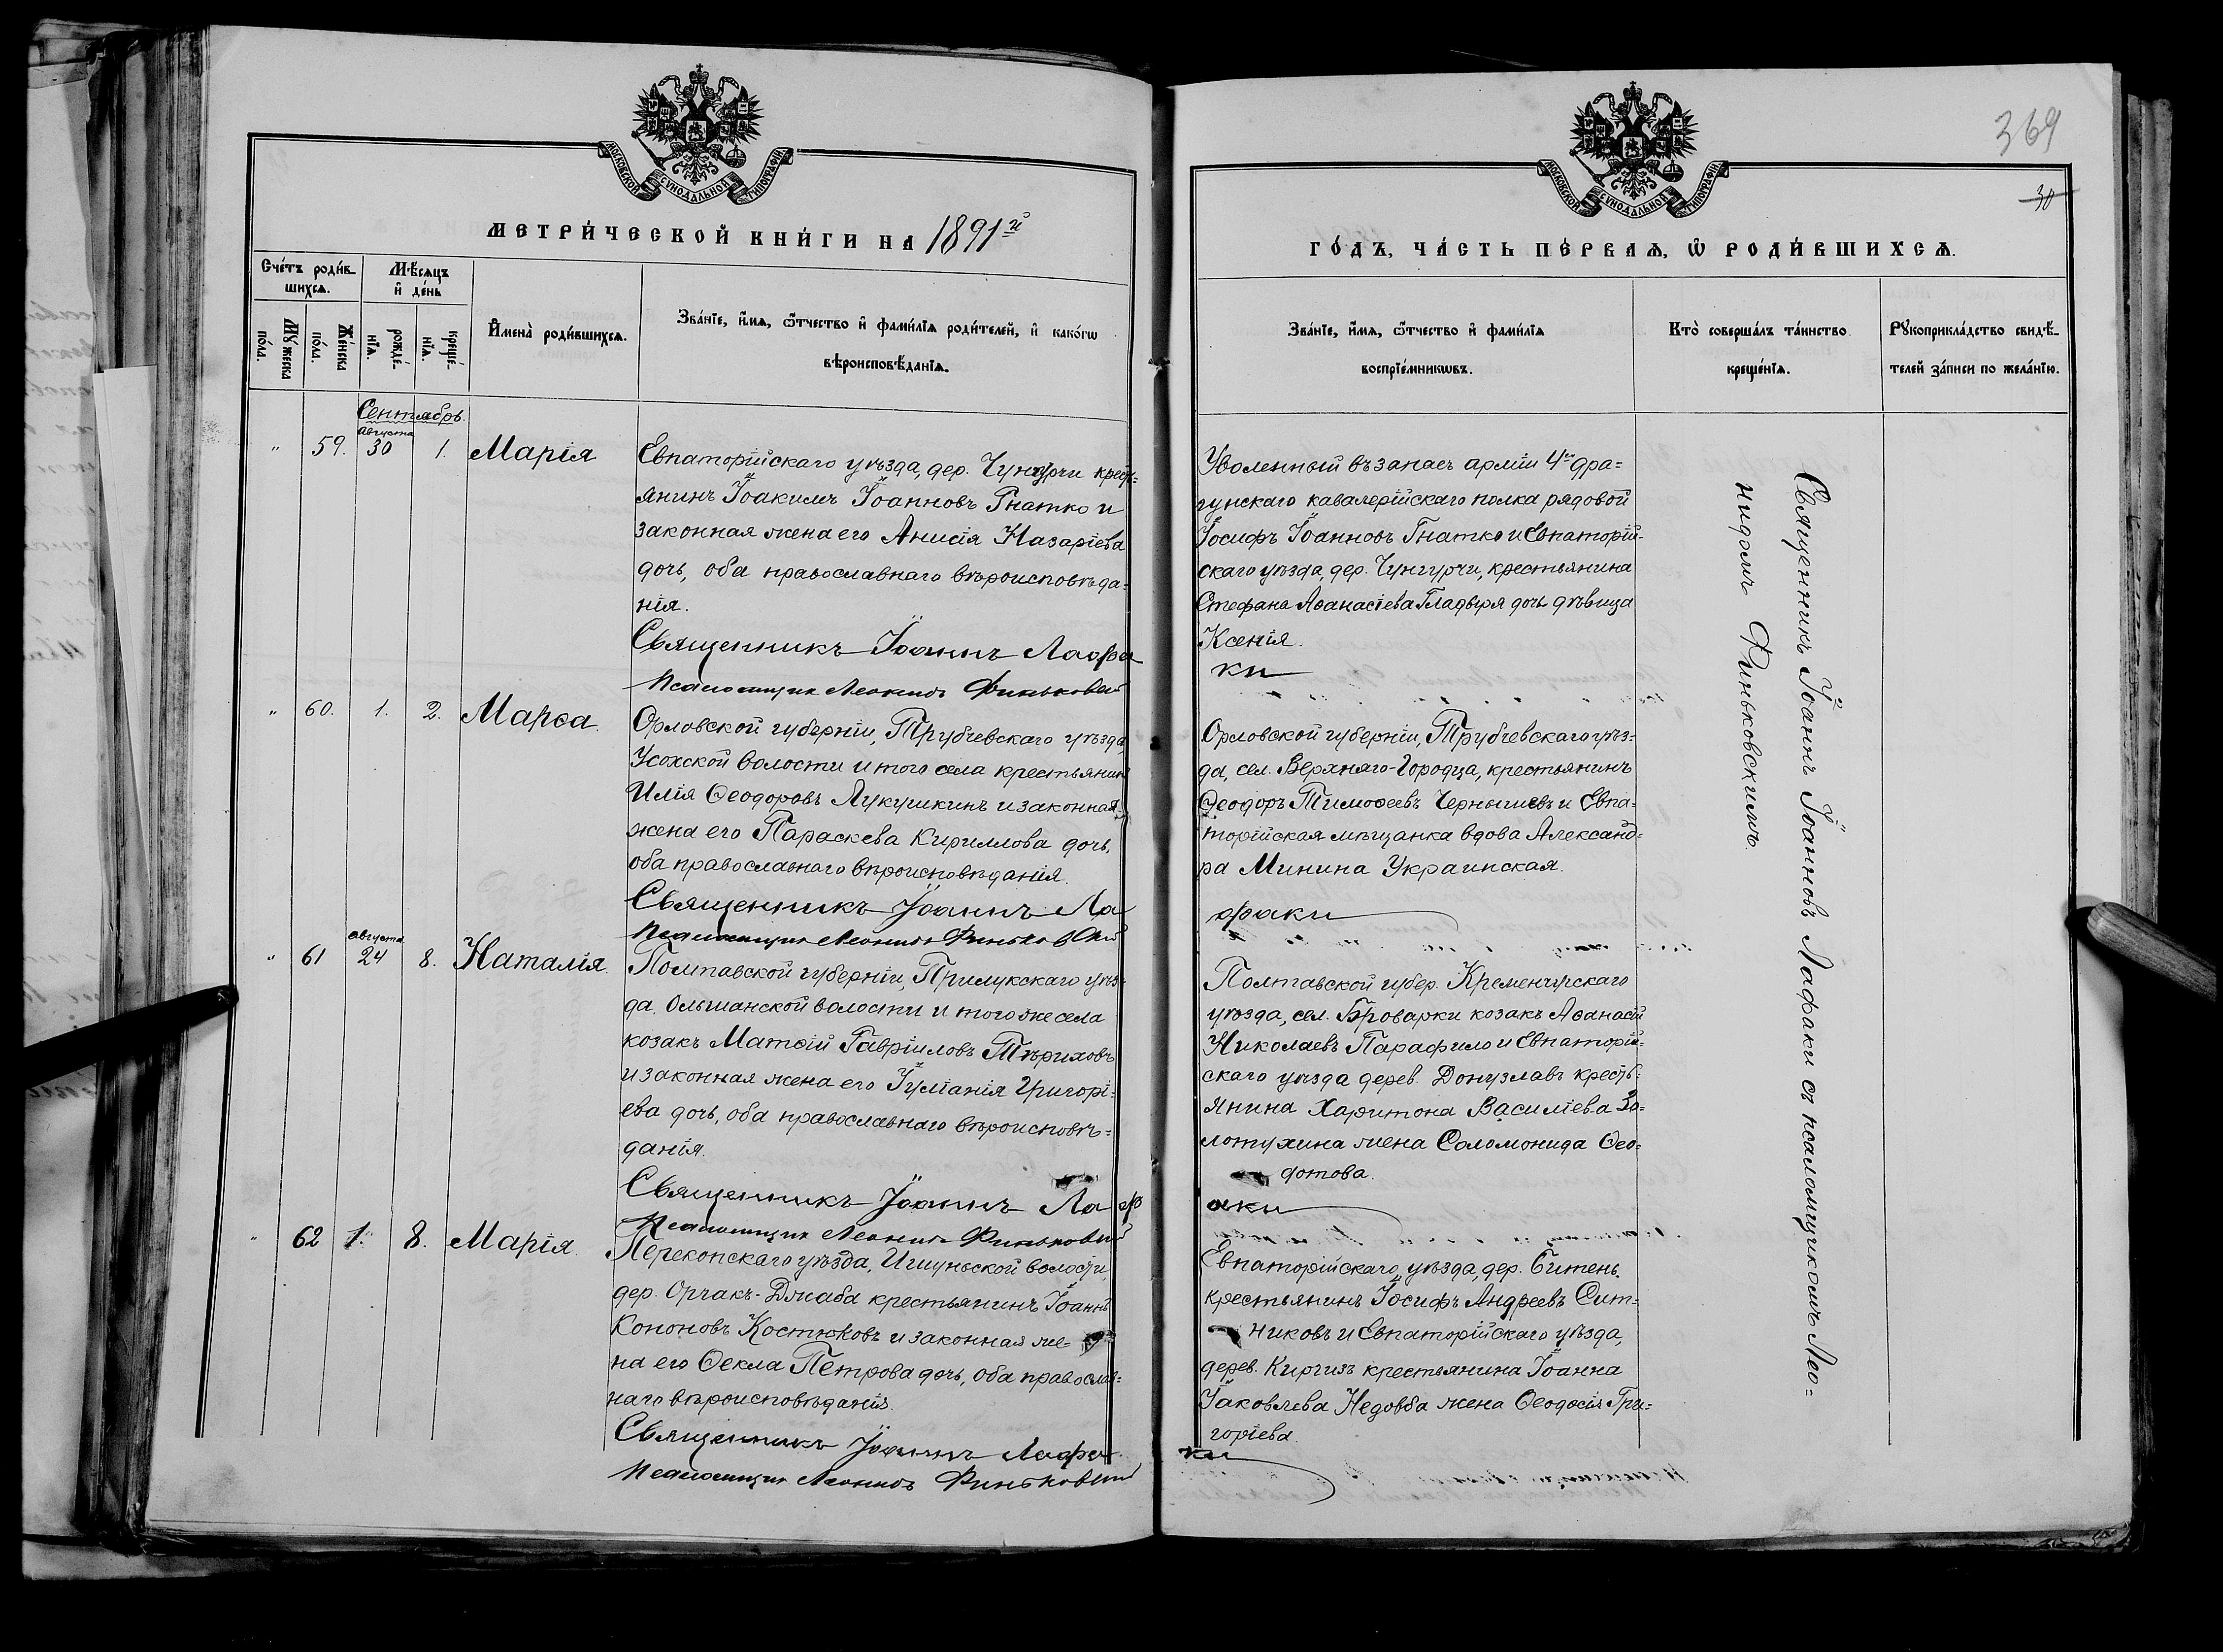 МОСКОВСКОЙ СѴНОДАЛЬНОЙ ТИПОГРАФІИ
МЕТРИ́ЧЕСКОЙ КНИ́ГИ НА 1891й
Сче́тъ роди́в-
шихсѧ.
Мꙋ́жеска
по́ла.
Же́нска
по́ла.
Мѣ́сѧцъ
и҆ де́нь
рожде́-
нїѧ.
креще́-
нїѧ.
И҆мена̀ роди́вшихсѧ.
Зва́нїе, и҆́мѧ, ѻ҆́тчество и҆ фами́лїѧ роди́телей, и҆ како́гѡ
вѣроисповѣ́данїѧ.
Сентябрь.
" 59. августа 30 1. Марія
Евпаторійскаго уѣзда, дер. Чунгурчи крест-
янинъ Іоакимъ Іоанновъ Гнатко и
законная жена его Анисія Назаріева
дочь, оба православнаго вѣроисповѣда=
нія.
Священникъ Іоаннъ Лафа
Псаломщик Леонидъ Финьковскій
" 60. 1. 2. Марѳа.
Орловской губерніи, Трубчевскаго уѣзда,
Усохской волости и того села крестьянинъ
Илія Ѳеодоровъ Лукушкинъ и законная
жена его Параскева Кириллова дочь,
оба православнаго вѣроисповѣданія.
Священникъ Іоаннъ Ла
Псаломщик Леонидъ Финьковскій
" 61 августа 24 8. Наталія.
Полтавской губерніи, Прилукскаго уѣз-
да, Ольшанской волости и того же села
козакъ Матѳій Гавріиловъ Тѣриховъ
и законная жена его Іуліанія Григорі=
ева дочь, оба православнаго вѣроисповѣ=
данія.
Священникъ Іоаннъ Лаф
Псаломщик Леонидъ Финьковскій
" 62 1. 8. Марія.
Перекопскаго уѣзда, Ишуньской волости,
дер. Орчакъ-Джаба крестьянинъ Іоаннъ
Кононовъ Костюковъ и законная же-
на его Ѳекла Петрова дочь, оба православ=
наго вѣроисповѣданія.
Священникъ Іоаннъ Лафа
Псаломщик Леонидъ Финьковскій
369
30
МОСКОВСКОЙ СѴНОДАЛЬНОЙ ТИПОГРАФІИ
ГО́ДЪ, ЧА́СТЬ ПЕ́РВАѦ, Ѡ҆ РОДИ́ВШИХСѦ.
Зва́нїе, и҆́мѧ, ѻ҆́тчество и҆ фами́лїѧ
воспрїе́мникѡвъ.
Кто̀ соверша́лъ та́инство
креще́нїѧ.
Рꙋкоприкла́дство свидѣ́-
телей за́писи по жела́нїю.
Уволенный въ запасъ арміи 4го дра=
гунскаго кавалерійскаго полка рядовой
Іосифъ Іоанновъ Гнатко и Евпаторій-
скаго уѣзда, дер. Чунгурчи, крестьянина
Стефана Аѳанасіева Гладыря дочь дѣвица
Ксенія.
ки
Орловской губерніи, Трубчевскаго уѣз=
да, сел. Верхняго-Городца, крестьянинъ
Ѳеодоръ Тимоѳеевъ Чернышевъ и Евпа=
торійская мѣщанка вдова Александ=
ра Минина Украинская.
факи
Полтавской губер. Кременчугскаго
уѣзда, сел. Броварки козакъ Аѳанасій
Николаевъ Парафило и Евпаторій-
скаго уѣзда дерев. Донузлавъ кресть-
янина Харитона Василіева Зо=
лотухина жена Соломонида Ѳео=
дотова.
аки
Евпаторійскаго уѣзда, дер. Битень
крестьянинъ Іосифъ Андреевъ Сит=
никовъ и Евпаторійскаго уѣзда,
дерев. Киргизъ крестьянина Іоанна
Іаковлева Недовба жена Ѳеодосія Гри=
горіева.
ки
Священникъ Іоаннъ Іоанновъ Лафаки съ псаломщикомъ Лео=
нидомъ Финьковскимъ.